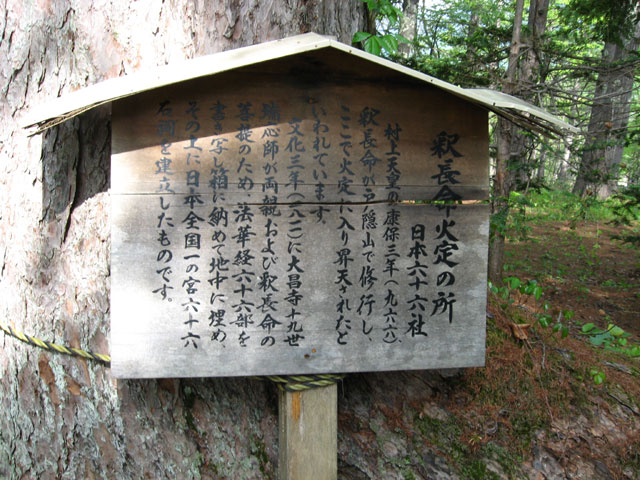 釈長命火定の所
日本六十六社
村上天皇の康保三年(九六六)、
釈長命が戸隠山で修行し、
ここで火定に入り昇天されたと
いわれています。
文化三年(一八〇六)に大昌寺十九世
瑞応師が両親および釈長命の
菩提のため、法華経六十六部を
書き写し箱に納めて地中に埋め
その上に日本全国一の宮六十六
石祠を建立したものです。